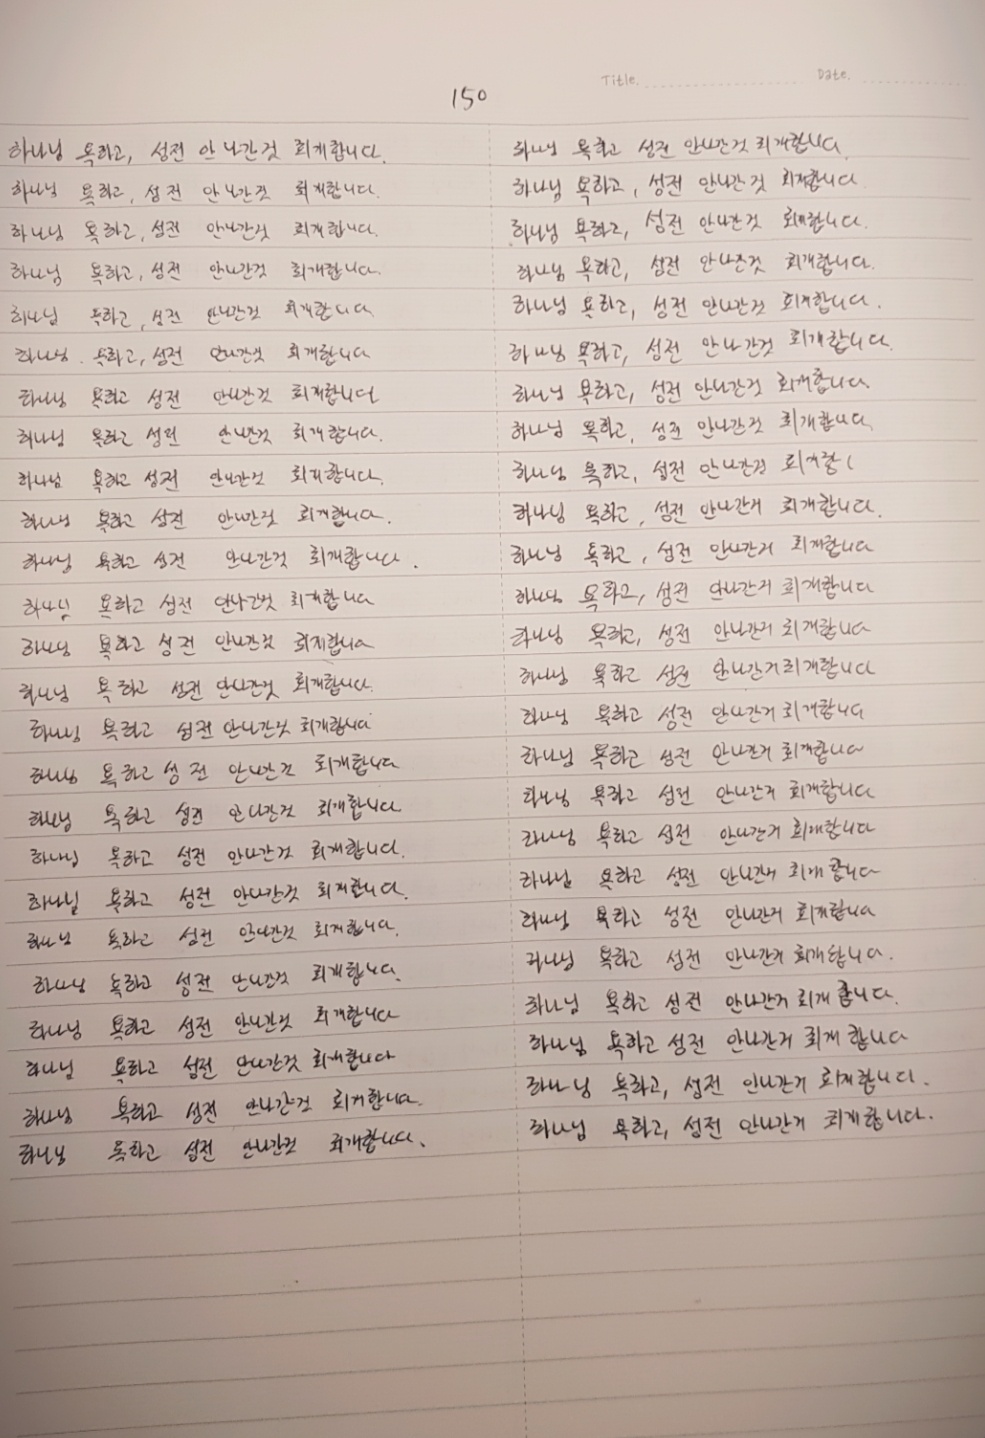 Title.
Date.
150
하나님 욕하고, 성전 안 나간것 회개합니다.
하나님 욕하고, 성전 안 나간것 회개합니다.
하나님 욕하고, 성전 안나간것 회개합니다.
하나님 욕하고, 성전 안나간것 회개합니다.
하나님 욕하고, 성전 안나간것 회개합니다
하나님. 욕하고, 성전 안나간것 회개합니다
하나님 욕하고 성전 안나간것 회개합니다
하나님 욕하고 성전 안나간것 회개합니다.
하나님 욕하고 성전 안나간것 회개합니다.
하나님 욕하고 성전 안나간것 회개합니다.
하나님 욕하고 성전 안나간것 회개합니다.
하나님 욕하고 성전 안나간것 회개합니다
하나님 욕하고 성전 안나간것 회개합니다
하나님 욕하고 성전 안나간것 회개합니다.
하나님 욕하고 성전 안나간것 회개합니다
하나님 욕하고 성전 안나간것 회개합니다
하나님 욕하고 성전 안나간것 회개합니다
하나님 욕하고 성전 안나간것 회개합니다.
하나님 욕하고 성전 안나간것 회개합니다.
하나님 욕하고 성전 안나간것 회개합니다.
하나님 욕하고 성전 안나간것 회개합니다.
하나님 욕하고 성전 안나간것 회개합니다
하나님 욕하고 성전 안나간것 회개합니다
하나님 욕하고 성전 안나간것 회개합니다.
하나님 욕하고 성전 안나간것 회개합니다.
하나님 욕하고 성전 안나간것 회개합니다.
하나님 욕하고, 성전 안나간것 회개합니다.
하나님 욕하고, 성전 안나간것 회개합니다.
하나님 욕하고, 성전 안나간것 회개합니다.
하나님 욕하고, 성전 안나간것 회개합니다.
하나님 욕하고, 성전 안나간것 회개합니다.
하나님 욕하고, 성전 안나간것 회개합니다.
하나님 욕하고, 성전 안나간것 회개합니다.
하나님 욕하고, 성전 안나간것 회개합
하나님 욕하고, 성전 안나간거 회개합니다.
하나님 욕하고, 성전 안나간거 회개합니다
하나님 욕하고, 성전 안나간거 회개합니다
하나님 욕하고, 성전 안나간거 회개합니다
하나님 욕하고 성전 안나간거 회개합니다
하나님 욕하고 성전 안나간거 회개합니다
하나님 욕하고 성전 안나간거 회개합니다
하나님 욕하고 성전 안나간거 회개합니다
하나님 욕하고 성전 안나간거 회개합니다
하나님 욕하고 성전 안나간거 회개합니다
하나님 욕하고 성전 안나간거 회개합니다
하나님 욕하고 성전 안나간거 회개합니다.
하나님 욕하고 성전 안나간거 회개합니다.
하나님 욕하고 성전 안나간거 회개합니다
하나님 욕하고, 성전 안나간거 회개합니다.
하나님 욕하고, 성전 안나간거 회개합니다.